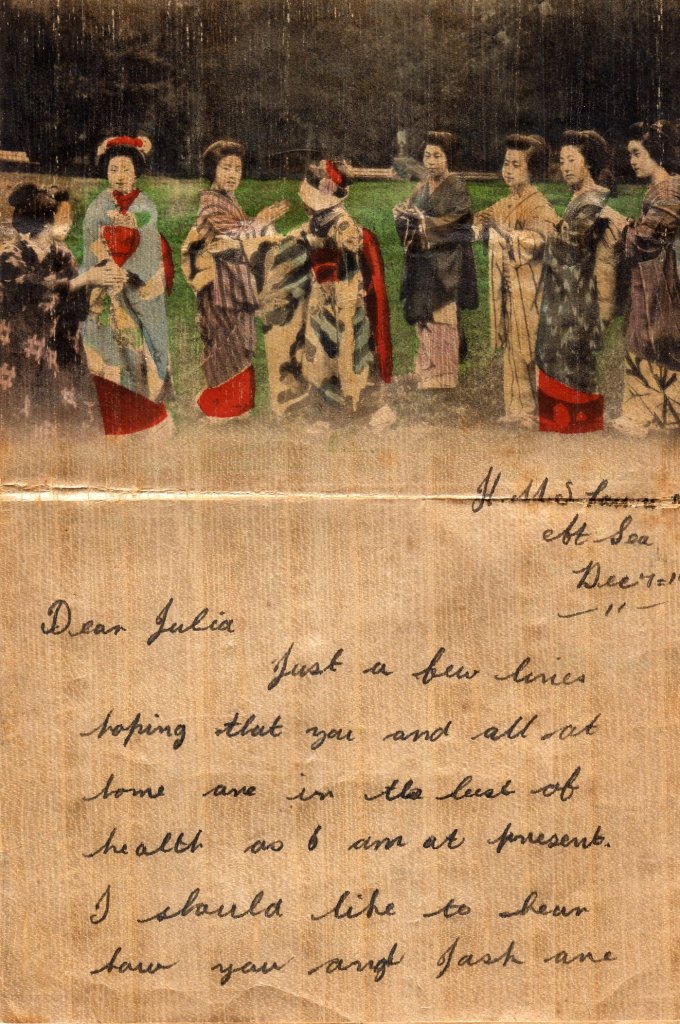 H.M.S
At Sea
Dec 7=1
— 11 —
Dear Julia
Just a few lines
hoping that you and all at
home are in the best of
health as I am at present.
I should like to hear
how you and Jack are